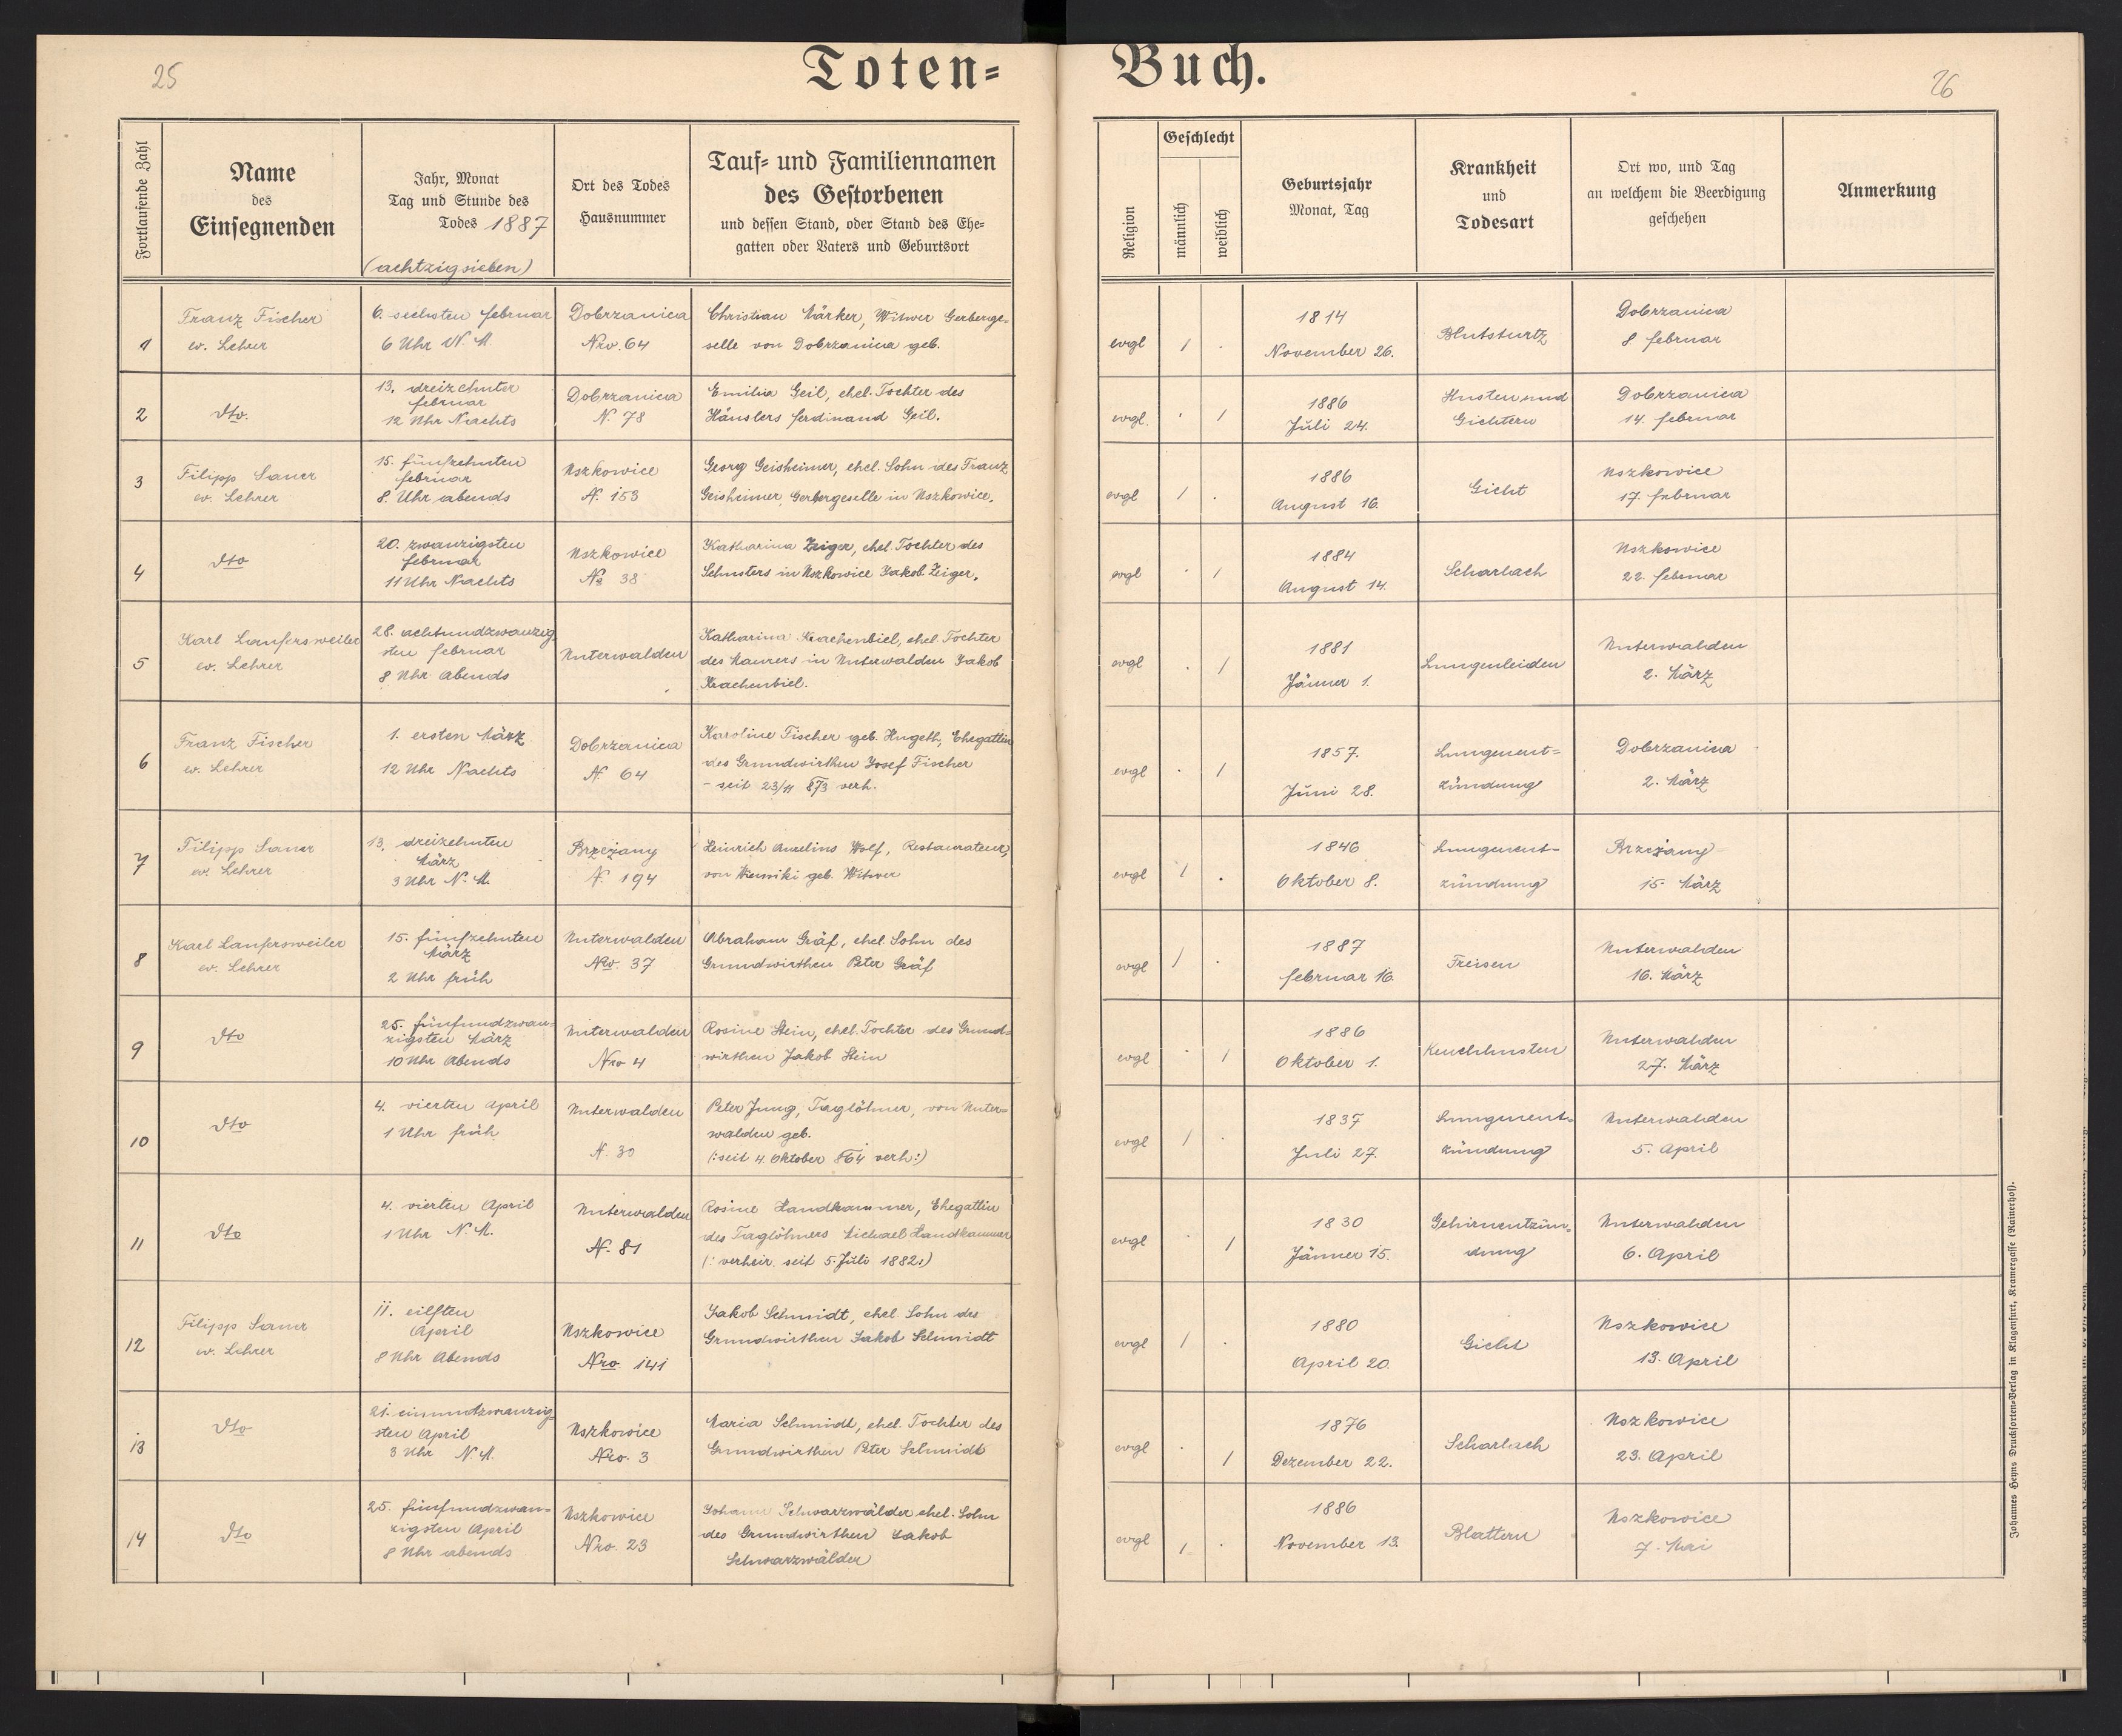 25
Toten=
Buch.
26
Fortlaufende Zahl
Name
des
Einsegnenden
Jahr, Monat
Tag und Stunde des
Todes 1887
(achtzigsieben)
Ort des Todes
Hausnummer
Tauf= und Familiennamen
des Gestorbenen
und dessen Stand, oder Stand des Ehe=
gatten oder Vaters und Geburtsort
Religion
Geschlecht
männlich
weiblich
Geburtsjahr
Monat, Tag
Krankheit
und
Todesart
Ort wo, und Tag
an welchem die Beerdigung
geschehen
Anmerkung
1
Franz Fischer
ev. Lehrer
6. sechsten februar
6 Uhr N. M.
Dobrzanica
Nro. 64
Christian Märker, Witwer Gerberge=
selle von Dobrzanica geb.
evgl
1 .
1814
November 26.
Blutsturtz
Dobrzanica
8 februar
2
dto.
13. dreizehnter
februar
12 Uhr Nachts
Dobrzanica
N. 78
Emilia Geil, ehel. Tochter des
Häuslers ferdinand Geil.
evgl.
. 1
1886
Juli 24.
Husten und
Gichtern
Dobrzanica
14. februar
3
Filipp Sauer
ev. Lehrer
15. fünfzehnten
februar
8. Uhr abends
Uszkowice
N. 153
Georg Geisheimer, ehel. Sohn des Franz
Geisheimer Gerbergeselle in Uszkowice.
evgl
1 .
1886
August 16.
Gicht
Uszkowice
17. februar
4
dto
20. zwanzigsten
februar
11 Uhr Nachts
Uszkowice
No 38
Katharina Zeiger, ehel. Tochter des
Schusters in Uszkowice Jakob Zeiger.
evgl
. 1
1884
August 14.
Scharlach
Uszkowice
22. februar
5
Karl Laufersweiler
ev. Lehrer
28. achtundzwanzig
sten februar
8 Uhr Abends
Unterwalden
Katharina Krachenbiel, ehel. Tochter
des Maurers in Unterwalden Jakob
Krachenbiel.
evgl
. 1
1881
Jänner 1.
Lungenleiden
Unterwalden
2. März
6
Franz Fischer
ev. Lehrer
1. ersten März
12 Uhr Nachts
Dobrzanica
N. 64
Karoline Fischer geb. Hugeth, Ehegattin
des Grundwirthen Josef Fischer
- seit 23/11 873 verh.
evgl
. 1
1857.
Juni 28.
Lungenent=
zündung
Dobrzanica
2. März
7
Filipp Sauer
ev. Lehrer
13. dreizehnten
März
3 Uhr N. M.
Brzeżany
N. 194
Heinrich Aurelius Wolf, Restaurateur,
von geb. Witwer
evgl
1 .
1846
Oktober 8.
Lungenent=
zündung
Brzeżany
15. März
8
Karl Laufersweiler
ev. Lehrer
15. fünfzehnten
März
2 Uhr früh
Unterwalden
Nro. 37
Abraham Gräf, ehel. Sohn des
Grundwirthen Peter Gräf
evgl
1 .
1887
februar 16.
Freisen
Unterwalden
16. März
9
dto
25. fünfundzwan=
zigsten März
10 Uhr Abends
Unterwalden
Nro 4
Rosine Stein, ehel. Tochter des Grund=
wirthen Jakob Stein
evgl
. 1
1886
Oktober 1.
Keuchhusten
Unterwalden
27. März
10
dto
4. vierten April
1 Uhr früh
Unterwalden
N. 30
Peter Jung, Taglöhner, von Unter=
walden geb.
(:seit 4. Oktober 864 verh:)
evgl
1 .
1837
Juli 27.
Lungenent=
zündung
Unterwalden
5. April
11
dto
4. vierten April
1 Uhr N. M.
Unterwalden
N. 81
Rosine Handkammer, Ehegattin
des Taglöhners Michael Handkammer
(: verheir. seit 5. Juli 1882:)
evgl
. 1
1830
Jänner 15.
Gehirnentzün=
dung
Unterwalden
6. April
12
Filipp Sauer
ev. Lehrer
11. eilften
April
8 Uhr Abends
Uszkowice
Nro. 141
Jakob Schmidt, ehel. Sohn des
Grundwirthen Jakob Schmidt
evgl
1 .
1880
April 20.
Gicht
Uszkowice
13. April
13
dto
21. einundzwanzig=
sten April
3 Uhr N. M.
Uszkowice
Nro. 3
Maria Schmidt, ehel. Tochter des
Grundwirthen Peter Schmidt
evgl
. 1
1876
Dezember 22.
Scharlach
Uszkowice
23. April
14
dto
25. fünfundzwan=
zigsten April
8 Uhr abends
Uszkowice
Nro. 23
Johann Schwarzwälder ehel. Sohn
des Grundwirthen Jakob
Schwarzwälder
evgl
1 .
1886
November 13.
Blattern
Uszkowice
7. Mai
Johannes Heyns Drucksorten=Verlag in Klagenfurt, Kramergasse (Rainerhof).